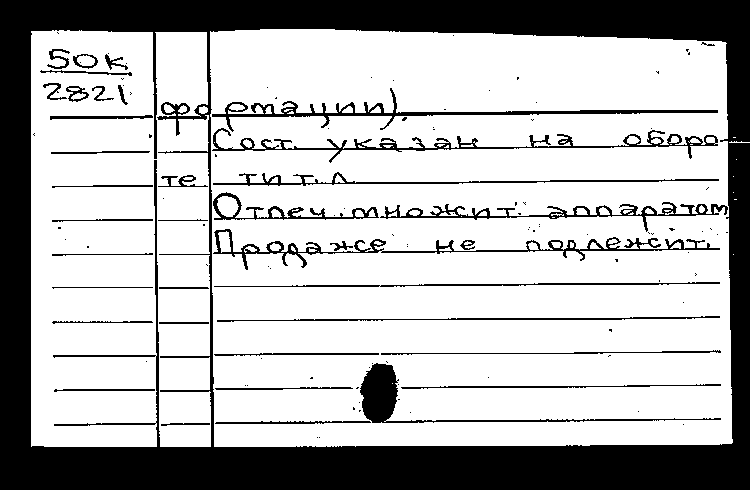 50к
2821
формации).
Сост. указан на оборо-
те тит. л
Отпеч. множит. аппаратом
Продаже не подлежит.